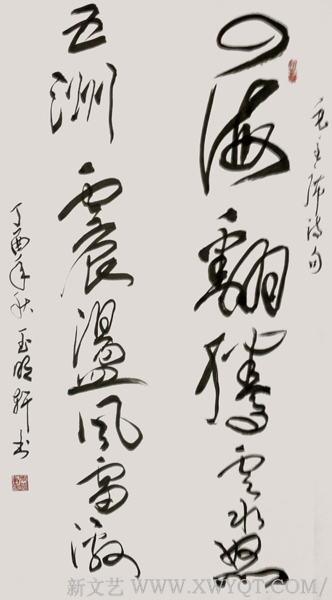 毛主席诗句
四海翻腾雲水怒
五洲震盪风雷激
丁酉年秋玉明轩书
新文艺 WWW.XWYQT.COM/